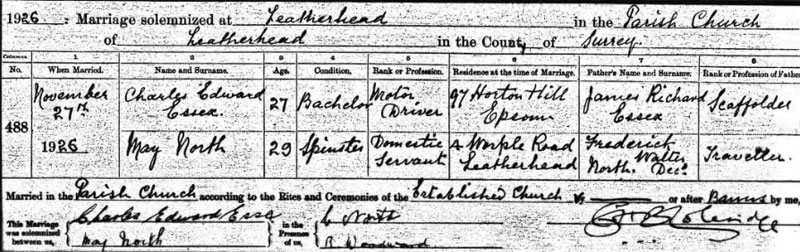 1926. Marriage solemnized at Leatherhead in the Parish Church
of Leatherhead in the County of Surrey.
Columns 1 2 3 4 5 6 7 8
No. When Married. Name and Surname. Age. Condition. Rank or Profession. Residence at the time of Marriage. Father's Name and Surname. Rank or Profession of Father
488 November 27th 1926
Charles Edward Essex. 27 Bachelor Motor Driver 97 Horton Hill Epsom James Richard Essex Scaffolder
May North 29 Spinster Domestic Servant 4 Worple Road Leatherhead Frederick Walter North. Decd. Traveller.
Married in the Parish Church according to the Rites and Ceremonies of the Established Church by or after Banns by me,
This Marriage was solemnized between us, Charles Edward Essex May North in the Presence of us, C North R Woodward